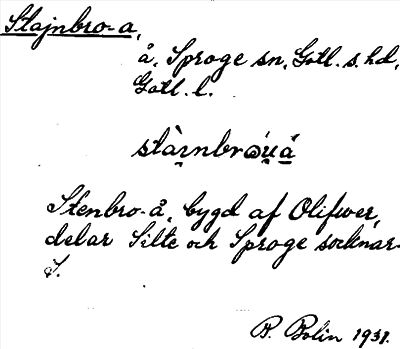 Stajnbro-a,
å, Sproge sn, Gotl. s. hd,
Gotl. l.
stàrnbrωu̯å
Stenbro-å, bygd af Olifwer,
delar Silte och Sproge socknar.
S.
B. Bolin 1931.